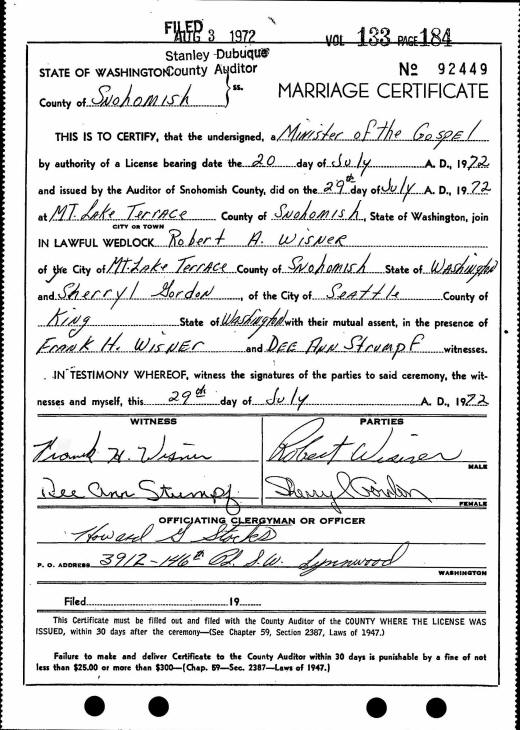 FILED
AUG 3 1972
VOL 133 PAGE 184
Stanley Dubuque
STATE OF WASHINGTON County Auditor
No 92449
ss.
County of Snohomish
MARRIAGE CERTIFICATE
THIS IS TO CERTIFY, that the undersigned, a Minister of the Gospel
by authority of a License bearing date the 20 day of July A. D., 1972
and issued by the Auditor of Snohomish County, did on the 29th day of July A. D., 1972
at MT. Lake Terrace County of Snohomish, State of Washington, join
CITY OR TOWN
IN LAWFUL WEDLOCK Robert A. Wisner
of the City of MT. Lake Terrace County of Snohomish State of Washington
and Sherryl Gordon, of the City of Seattle County of
King State of Washington with their mutual assent, in the presence of
Frank H. Wisner and Dee Ann Strumpf witnesses.
IN TESTIMONY WHEREOF, witness the signatures of the parties to said ceremony, the wit-
nesses and myself, this 29th day of July A. D., 1972
WITNESS PARTIES
Frank H. Wisner Robert Wisner
MALE
Dee Ann Strumpf Sherryl Gordon
FEMALE
OFFICIATING CLERGYMAN OR OFFICER
Howard G Stocks
P. O. ADDRESS 3912-146th Pl. S.W. Lynnwood
WASHINGTON
Filed 19
This Certificate must be filled out and filed with the County Auditor of the COUNTY WHERE THE LICENSE WAS
ISSUED, within 30 days after the ceremony—(See Chapter 59, Section 2387, Laws of 1947.)
Failure to make and deliver Certificate to the County Auditor within 30 days is punishable by a fine of not
less than $25.00 or more than $300—(Chap. 59—Sec. 2387—Laws of 1947.)